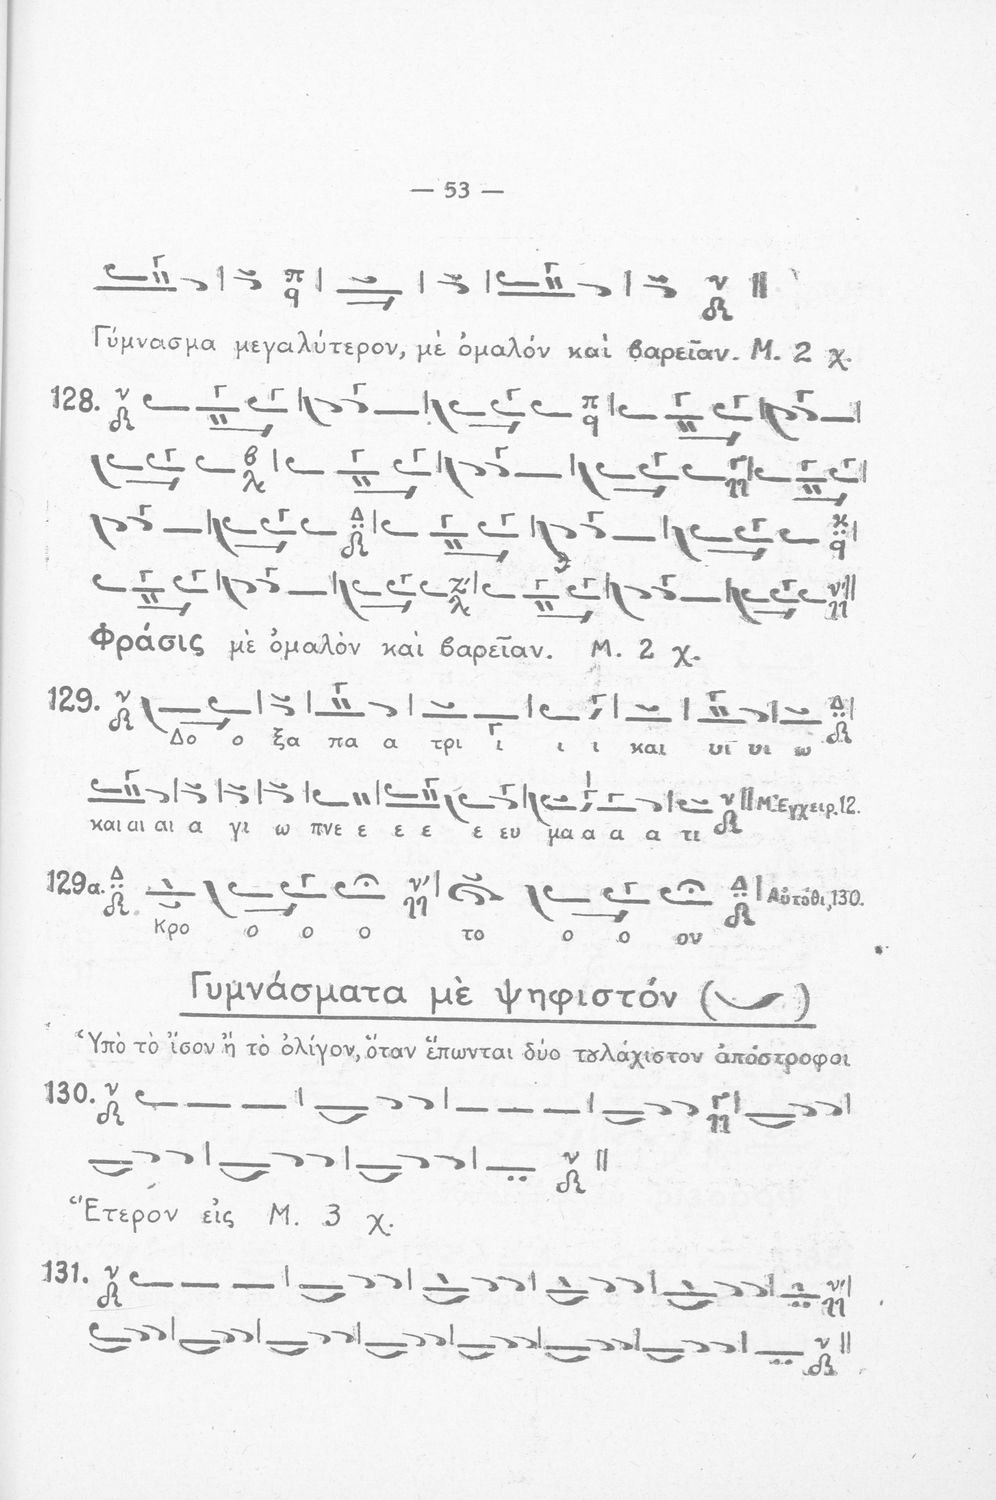 — 53 —
Γύμνασμα μεγαλύτερον, μὲ ὁμαλόν καὶ βαρεῖαν. Μ. 2 χ.
128. ν π
β
Δ κ
ζ΄ ν΄
Φράσις μὲ ὁμαλὸν καὶ βαρεῖαν. Μ. 2 χ.
129. ν Δ
Δο ο ξα πα α τρι ι ι ι και υι υι ω
ν Μ. Ἐγχειρ. 12.
και αι αι α γι ω πνε ε ε ε ε ευ μα α α α τι
129α. Δ ν΄ Δ Αὐτόθι, 130.
Κρο ο ο ο το ο ο ον
Γυμνάσματα μὲ ψηφιστόν ( )
Ὑπὸ τὸ ἴσον ἢ τὸ ὀλίγον, ὅταν ἕπωνται δύο τȣλάχιστον ἀπόστροφοι
130. ν Γ
ν
Ἕτερον εἰς Μ. 3 χ.
131. ν ν΄
ν